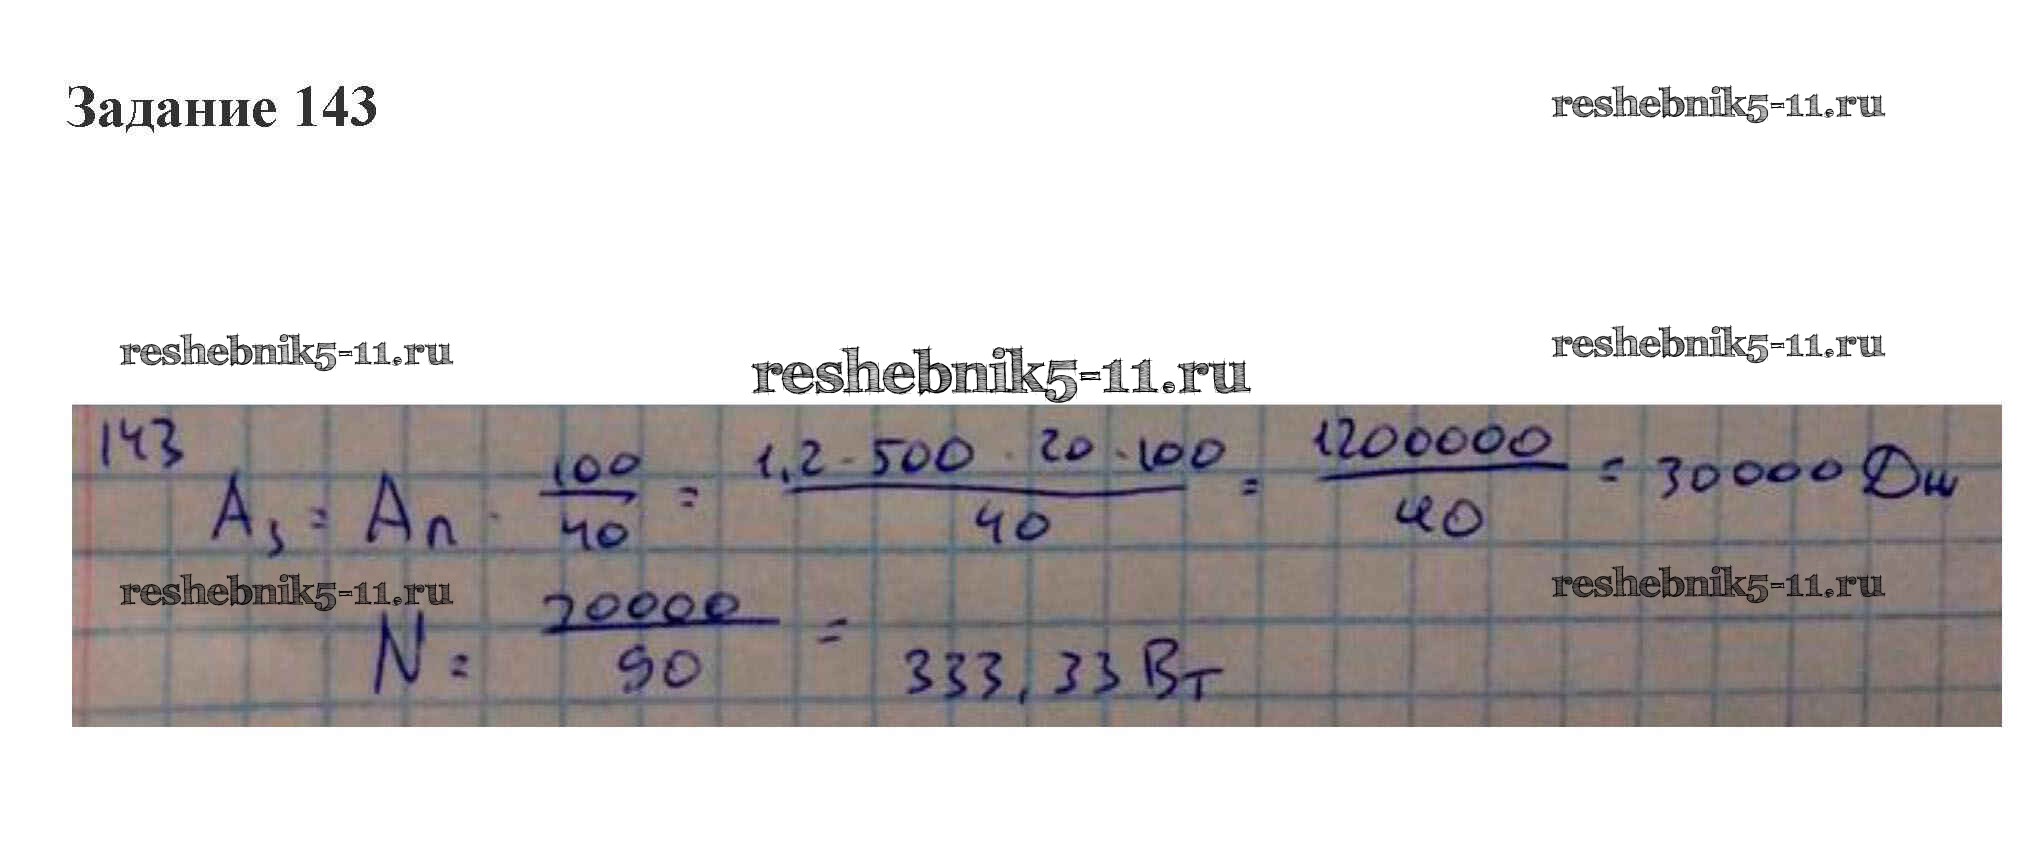 Задание 143
reshebnik5-11.ru
reshebnik5-11.ru
reshebnik5-11.ru
reshebnik5-11.ru
143
Aз = Aп · 100/40 = 1,2 · 500 · 20 · 100/40 = 1200000/40 = 30000 Дж
reshebnik5-11.ru
reshebnik5-11.ru
N = 30000/90 = 333,33 Вт